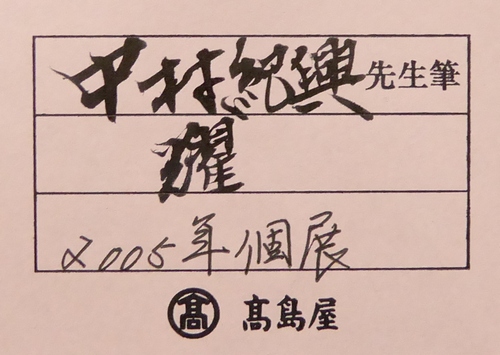 中村紀興先生筆
耀
2005年個展
髙 髙島屋